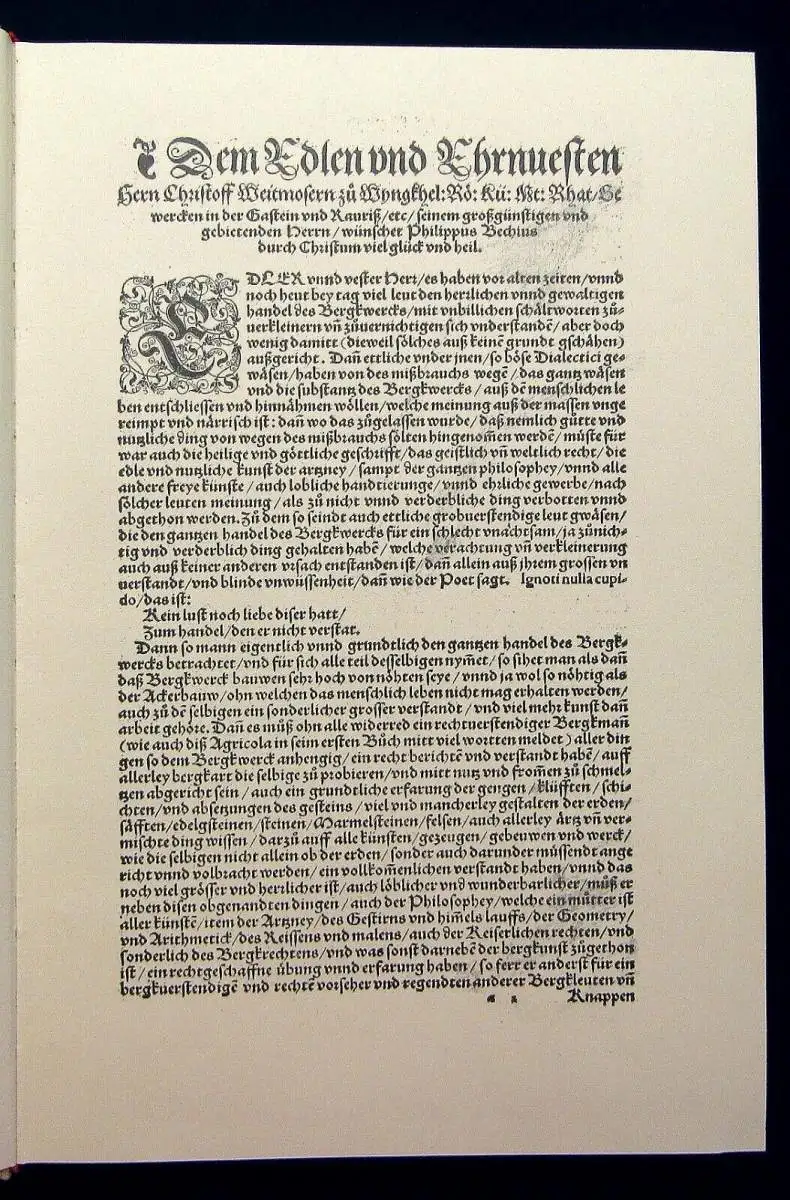 Dem Edlen vnd Ehrnuesten
Hern Christoff Weitmosern zů Wyngkhel: Rö: Kü: Mt: Rhat/Ge
wercken in der Gastein vnd Rauriß/etc/seinem großgünstigen vnd
gebietenden Herrn/wünschet Philippus Bechius
durch Christum viel glück vnd heil.
EDLER vnnd vester Herr/es haben vor alten zeiten/vnnd
noch heut bey tag viel leut den herrlichen vnnd gewaltigen
handel des Bergkwercks/mit vnbillichen schältworten zů-
uerkleinern vñ zůuernichtigen sich vnderstandẽ/aber doch
wenig damitt (dieweil sölches auß keinẽ grundt gschähen)
außgericht. Dañ ettliche vnder jnen/so böse Dialectici ge-
wäsen/haben von des mißbrauchs wegẽ/das gantz wäsen
vnd die substantz des Bergkwercks/auß dẽ menschlichen le
ben entschliessen vnd hinnähmen wöllen/welche meinung auß der massen vnge
reimpt vnd närrisch ist: dañ wo das zůgelassen wurde/daß nemlich gůtte vnd
nutzliche ding von wegen des mißbrauchs sölten hingenom̃en werdẽ/můste für
war auch die heilige vnd göttliche geschrifft/das geistlich vñ weltlich recht/die
edle vnd nutzliche kunst der artzney/sampt der gantzen philosophey/vnnd alle
andere freye künste/auch lobliche handtierunge/vnnd ehrliche gewerbe/nach
sölcher leuten meinung/als zů nicht vnnd verderbliche ding verbotten vnnd
abgethon werden. Zů dem so seindt auch ettliche grobuerstendige leut gwäsen/
die den gantzen handel des Bergkwercks für ein schlecht vnachtsam/ja zůnich-
tig vnd verderblich ding gehalten habẽ/welche verachtung vñ verkleinerung
auch auß keiner anderen vrsach entstanden ist/dañ allein auß jhrem grossen vn
uerstandt/vnd blinde vnwüssenheit/dañ wie der Poet sagt. Ignoti nulla cupi-
do/das ist:
Kein lust noch liebe diser hatt/
Zum handel/den er nicht verstat.
Dann so mann eigentlich vnnd gründtlich den gantzen handel des Bergk-
wercks betrachtet/vnd für sich alle teil desselbigen nym̃et/so sihet man als dañ
daß Bergkwerck bauwen sehr hoch von nöhten seye/vnnd ja wol so nöhtig als
der Ackerbauw/ohn welchen das menschlich leben nicht mag erhalten werden/
auch zů dẽ selbigen ein sonderlicher grosser verstandt/vnd viel mehr kunst dañ
arbeit gehöre. Dañ es můß ohn alle widerred ein rechtuerstendiger Bergkmañ
(wie auch diß Agricola in seim ersten Bůch mitt viel wortten meldet) aller din
gen so dem Bergkwerck anhengig/ein recht berichtẽ vnd verstandt habẽ/auff
allerley bergkart die selbige zů probieren/vnd mitt nutz vnd from̃en zů schmel-
tzen abgericht sein/auch ein grundtliche erfarung der gengen/klüfften/schi-
chten/vnd absetzungen des gesteins/viel vnd mancherley gestalten der erden/
säfften/edelgsteinen/steinen/Marmelsteinen/felsen/auch allerley ärtz vñ ver-
mischte ding wissen/darzů auff alle künsten/gezeugen/gebeuwen vnd werck/
wie die selbigen nicht allein ob der erden/sonder auch darunder müssendt ange
richt vnnd volbracht werden/ein vollkom̃enlichen verstandt haben/vnnd das
noch viel grösser vnd herrlicher ist/auch löblicher vnd wunderbarlicher/můß er
neben disen obgenandten dingen/auch der Philosophey/welche ein můtter ist
aller künstẽ/item der Artzney/des Gestirns vnd him̃els lauffs/der Geometry/
vnd Arithmetick/des Reissens vnd malens/auch der Keiserlichen rechten/vnd
sonderlich des Bergkrechtens/vnd was sonst darneben der bergkunst zůgethon
ist/ein rechtgeschaffne übung vnnd erfarung haben/so ferr er anderst für ein
bergkuerstendigẽ vnd rechtẽ vorseher vnd regendten anderer Bergkleuten vñ
Knappen